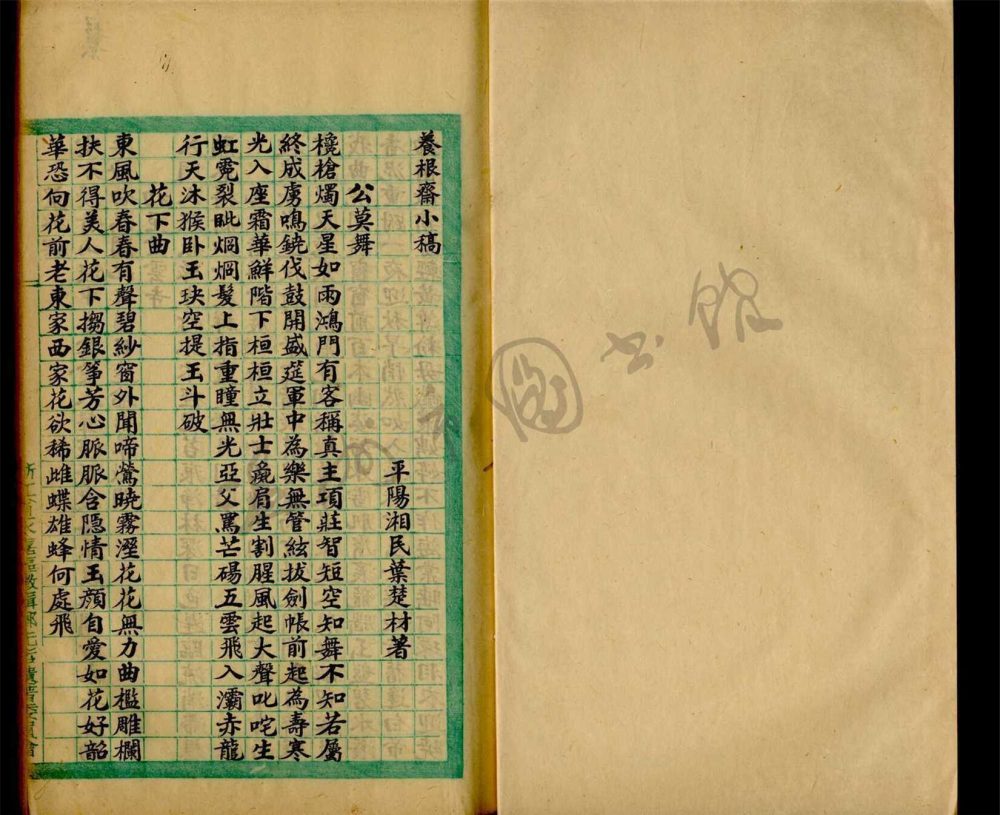 養根齋小稿
平陽湘民葉楚材著
公莫舞
欃槍燭天星如雨鴻門有客稱真主項莊智短空知舞不知若屬
終成虜鳴鐃伐鼓開盛筵軍中為樂無管絃拔劍帳前起為壽寒
光入座霜華鮮階下桓桓立壯士彘肩生割腥風起大聲叱咤生
虹霓裂眦烱烱髮上指重瞳無光亞父罵芒碭五雲飛入灞赤龍
行天沐猴卧玉玦空提玉斗破
花下曲
東風吹春春有聲碧紗窗外聞啼鶯曉霧溼花花無力曲檻雕欄
扶不得美人花下搊銀箏芳心脈脈含隱情玉顏自愛如花好韶
華恐向花前老東家西家花欲稀雌蝶雄蜂何處飛